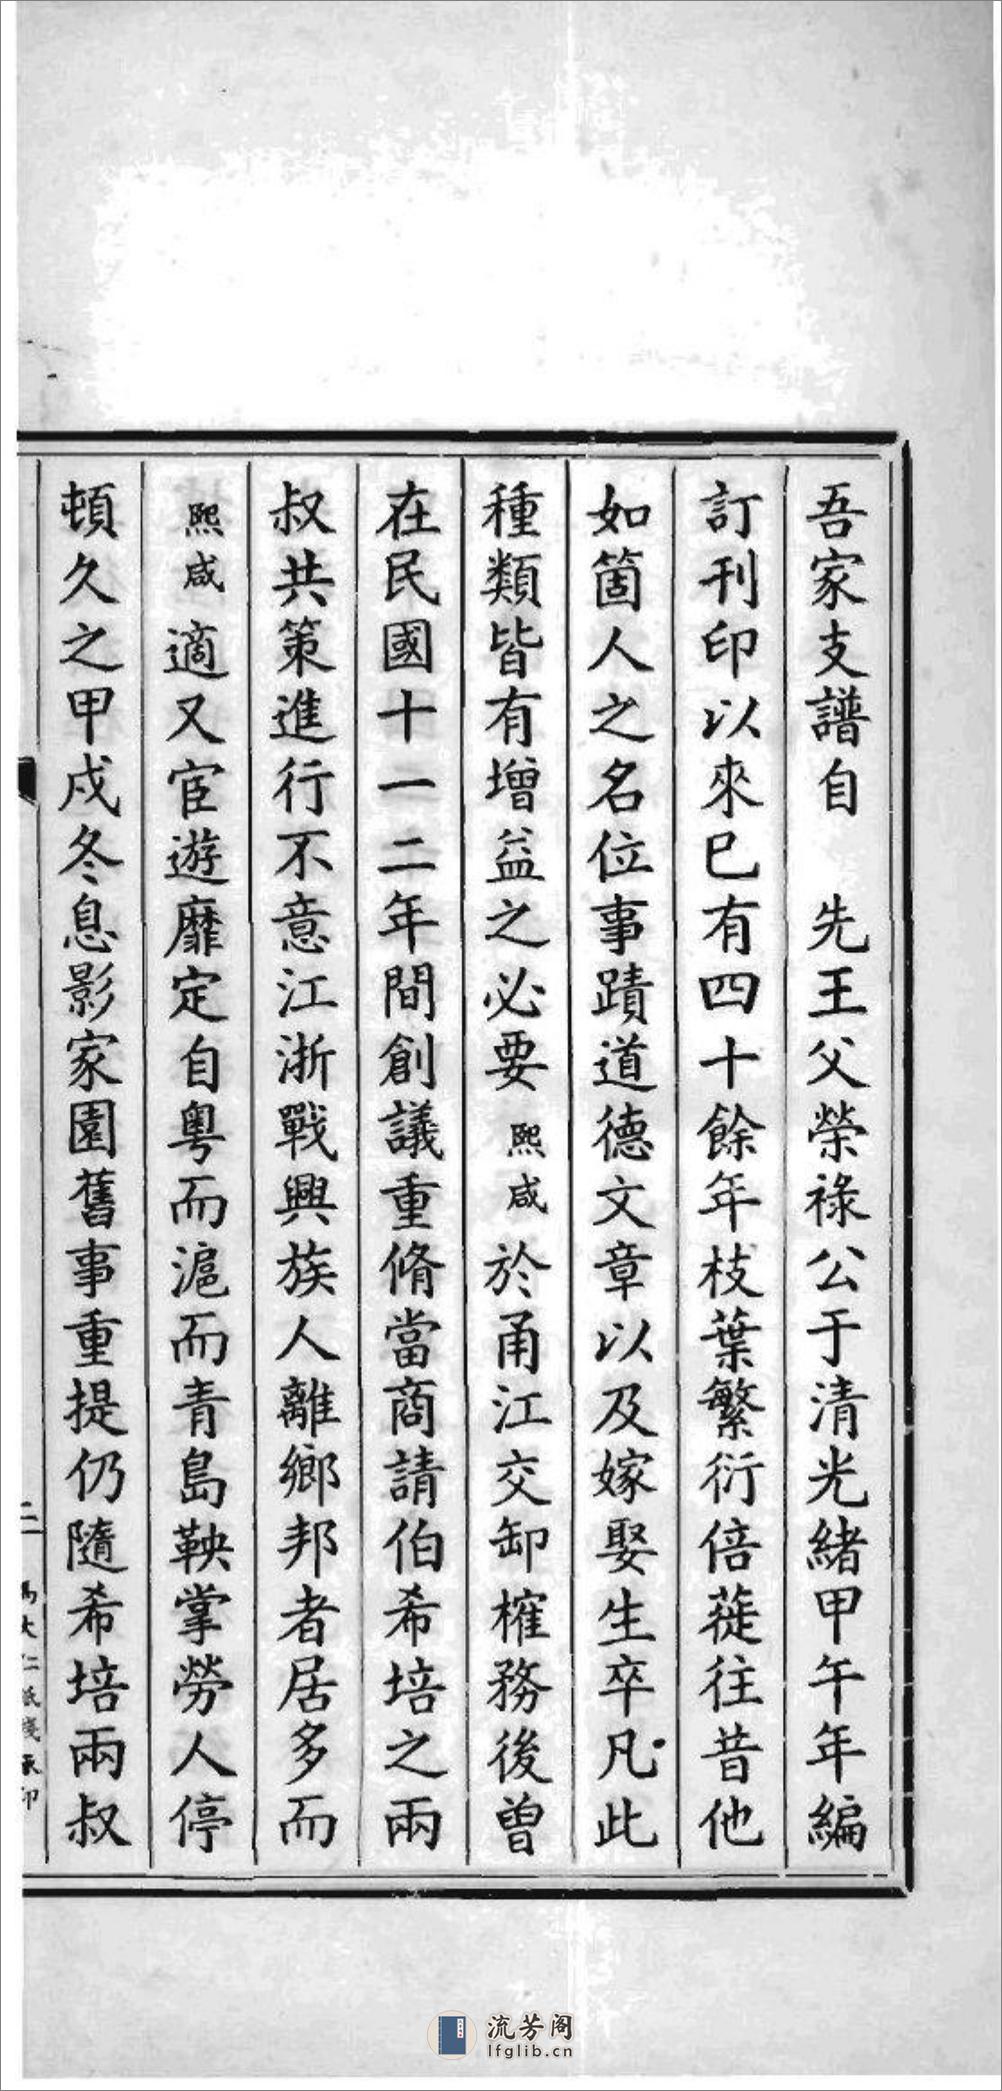 吾家支譜自　先王父榮祿公于清光緒甲午年編
訂刊印以來已有四十餘年枝葉繁衍倍蓰往昔他
如箇人之名位事蹟道德文章以及嫁娶生卒凡此
種類皆有增益之必要熙咸於甬江交卸榷務後曾
在民國十一二年間創議重脩當商請伯希培之兩
叔共策進行不意江浙戰興族人離鄉邦者居多而
熙咸適又宦遊靡定自粵而滬而青島鞅掌勞人停
頓久之甲戌冬息影家園舊事重提仍隨希培兩叔
二
流芳阁
lfglib.cn